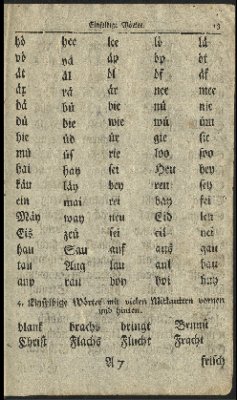 Einsilbige Wörter. 13
hö hee lee lö lä
vö vä äp öp öt
ät äl öl öf äf
är rä är nee mee
dä hü die nü nie
dü die wie wü üm
hie üd ür gie sie
mü üs rie loo woo
hai hay sei Heu bey
käu läy bey ren sey
ein mai rei bay sei
Mäy way neu Eid len
Eis zeü sei eil nei
hau Sau auf aus gau
tau Aug lau aul hau
any rau hoy boi huy
4. Einsylbige Wörter mit vielen Mitlautern vornen
und hinten.
blank brachs bringt Brunst
Christ Flachs Flucht Fracht
A 7 frisch